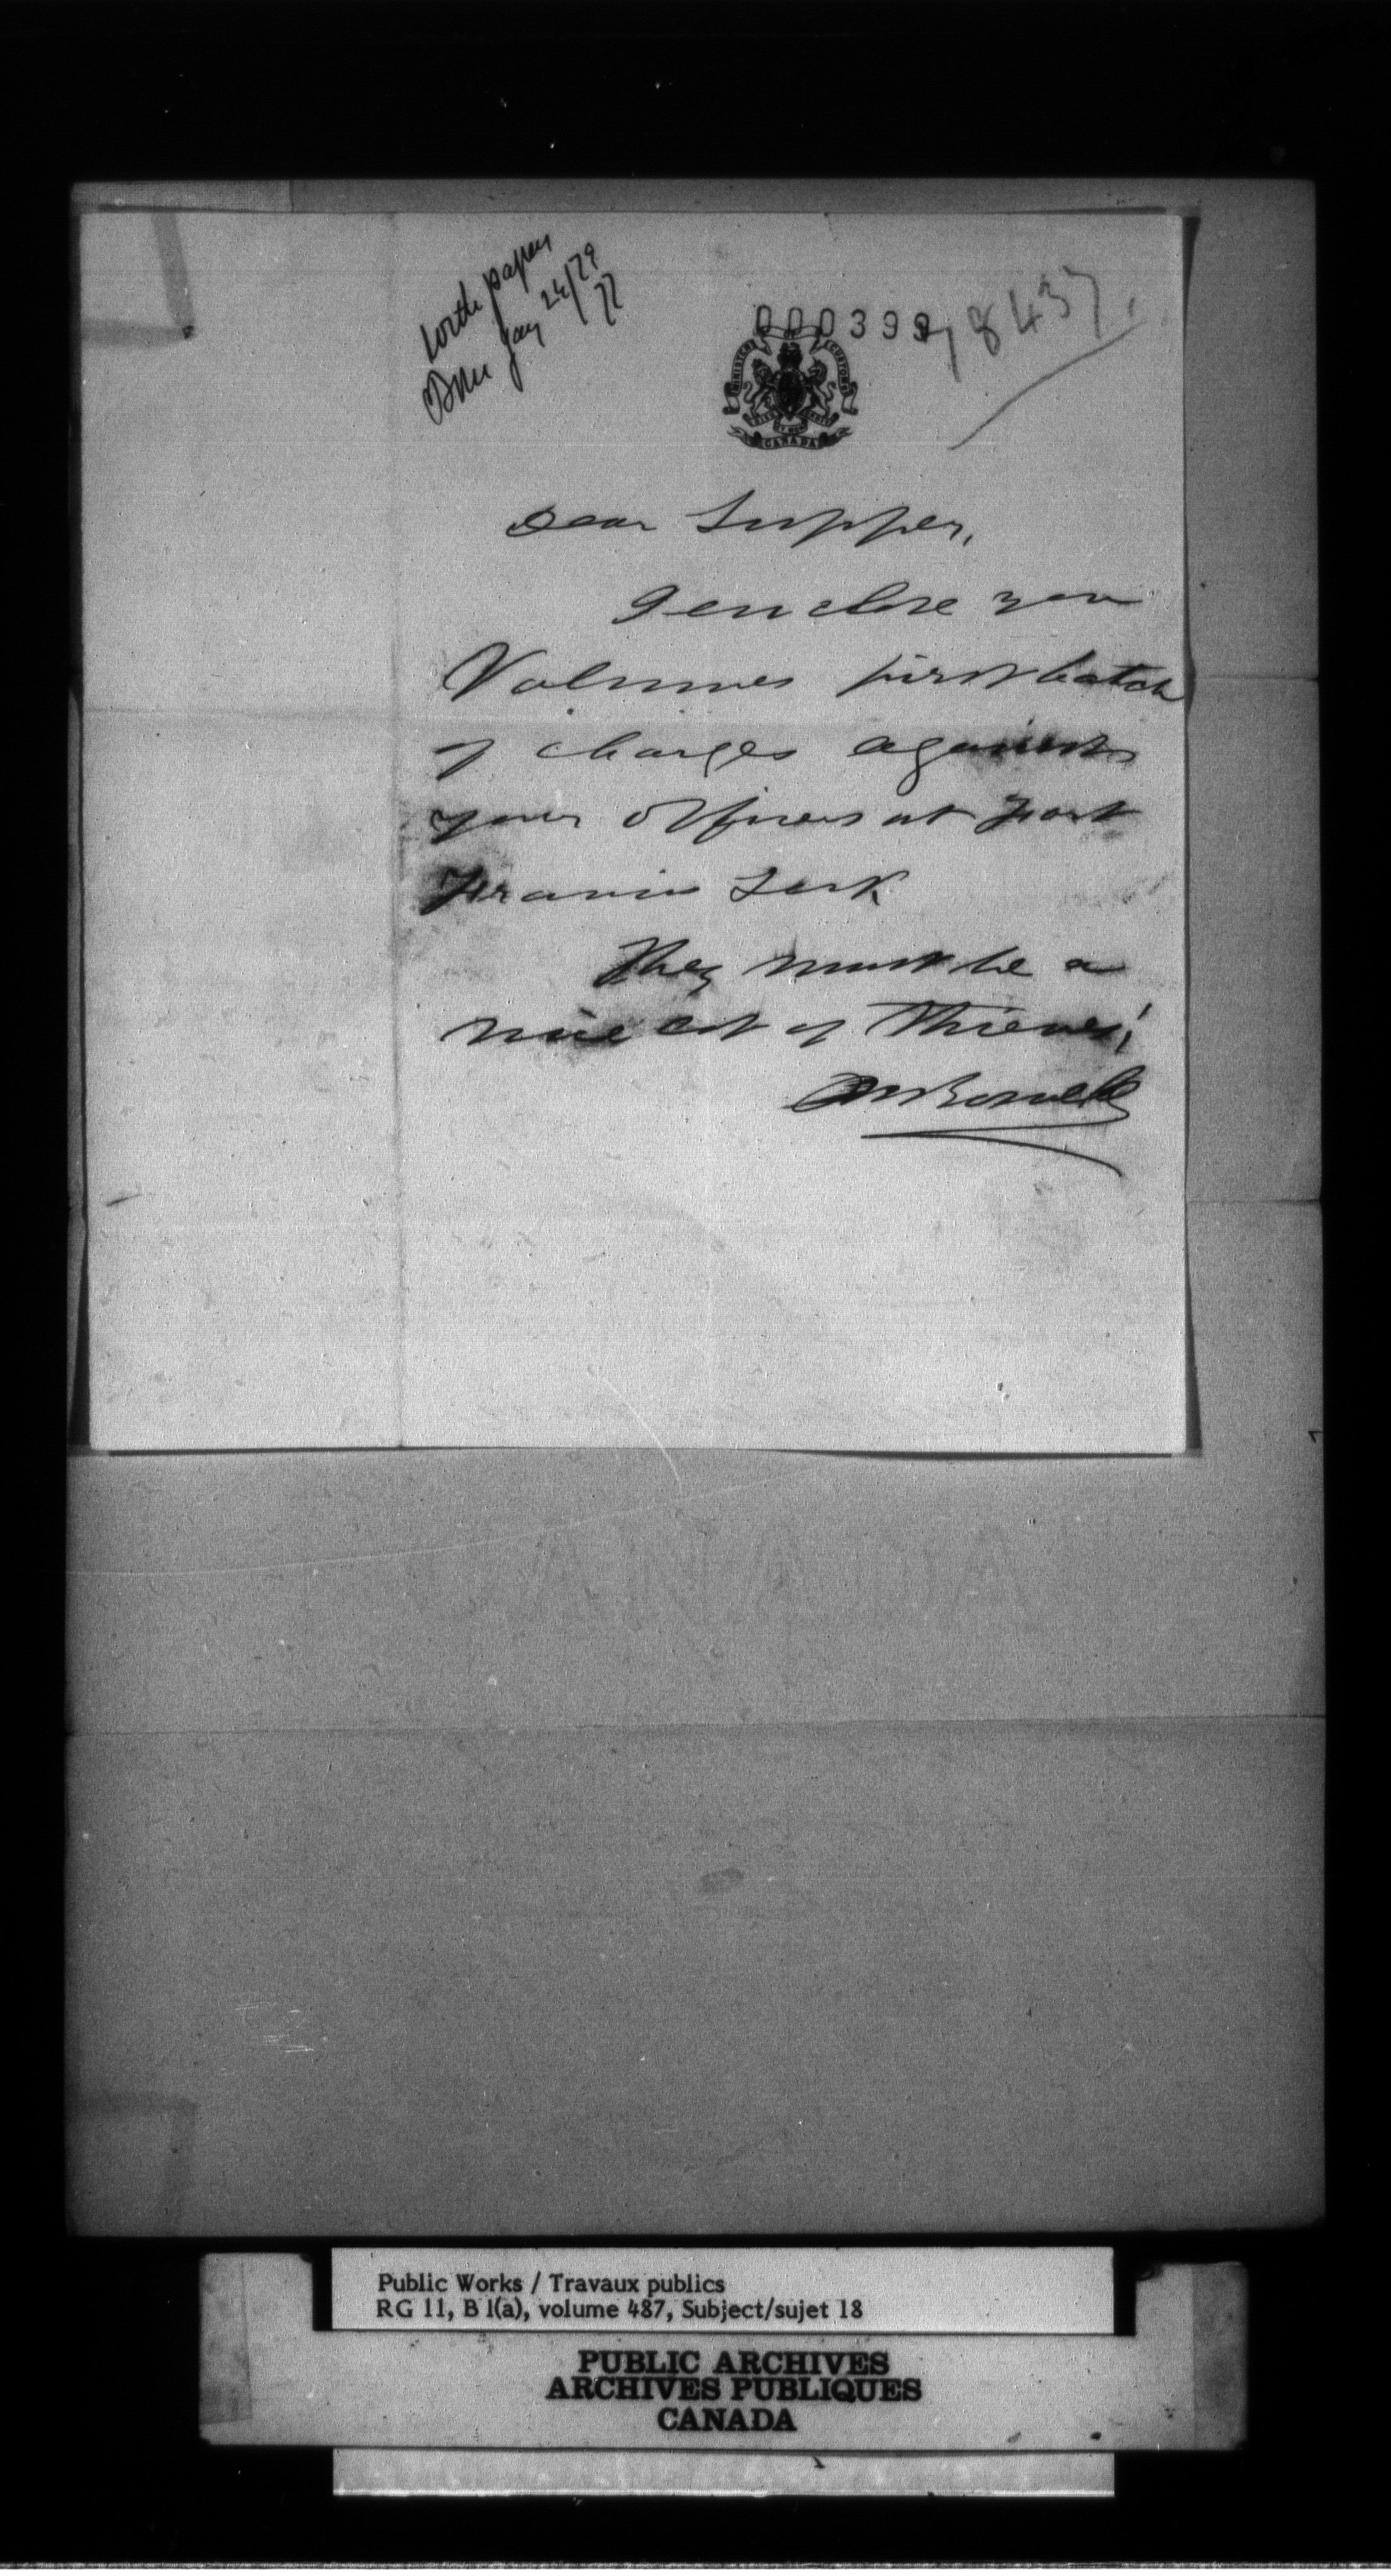 with papers
BM Jany 24/79
77
000399
78437.
MINISTER OF CUSTOMS
CANADA
Dear Tupper,
I enclose you
Volumes first batch
of charges against
your officers at Fort
Francis Lock
They must be a
nice lot of Thieves!
MBowell
Public Works / Travaux publics
RG 11, B 1(a), volume 487, Subject/sujet 18
PUBLIC ARCHIVES
ARCHIVES PUBLIQUES
CANADA